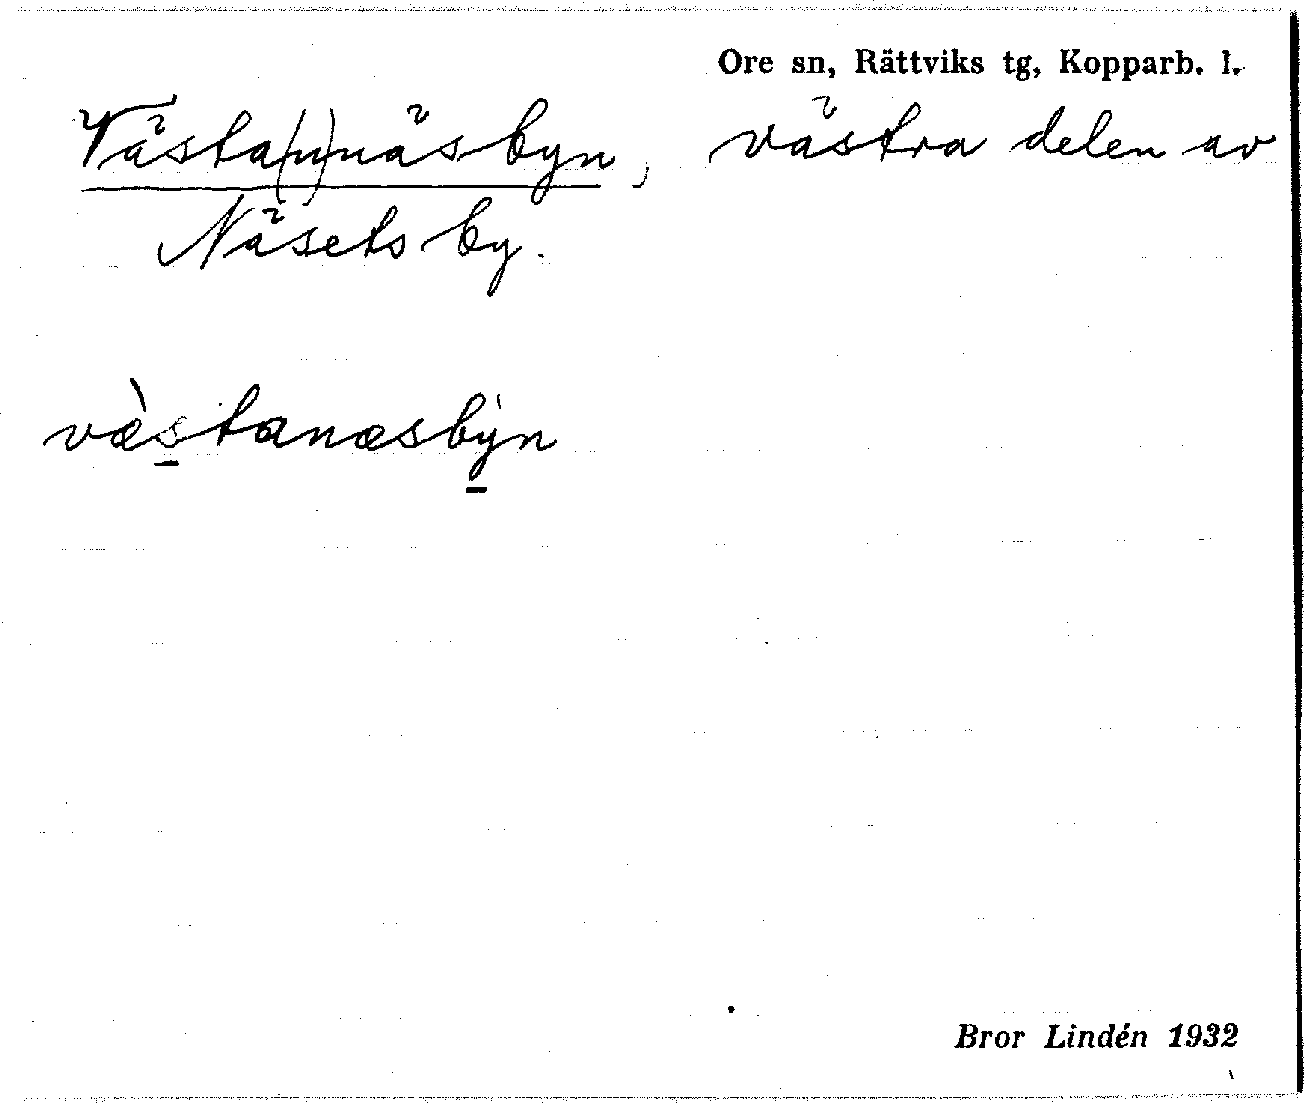 Ore sn, Rättviks tg, Kopparb. l.
Västa(n)näsbyn, västra delen av
Näsets by.
væ̀stanæsby̍n
Bror Lindén 1932